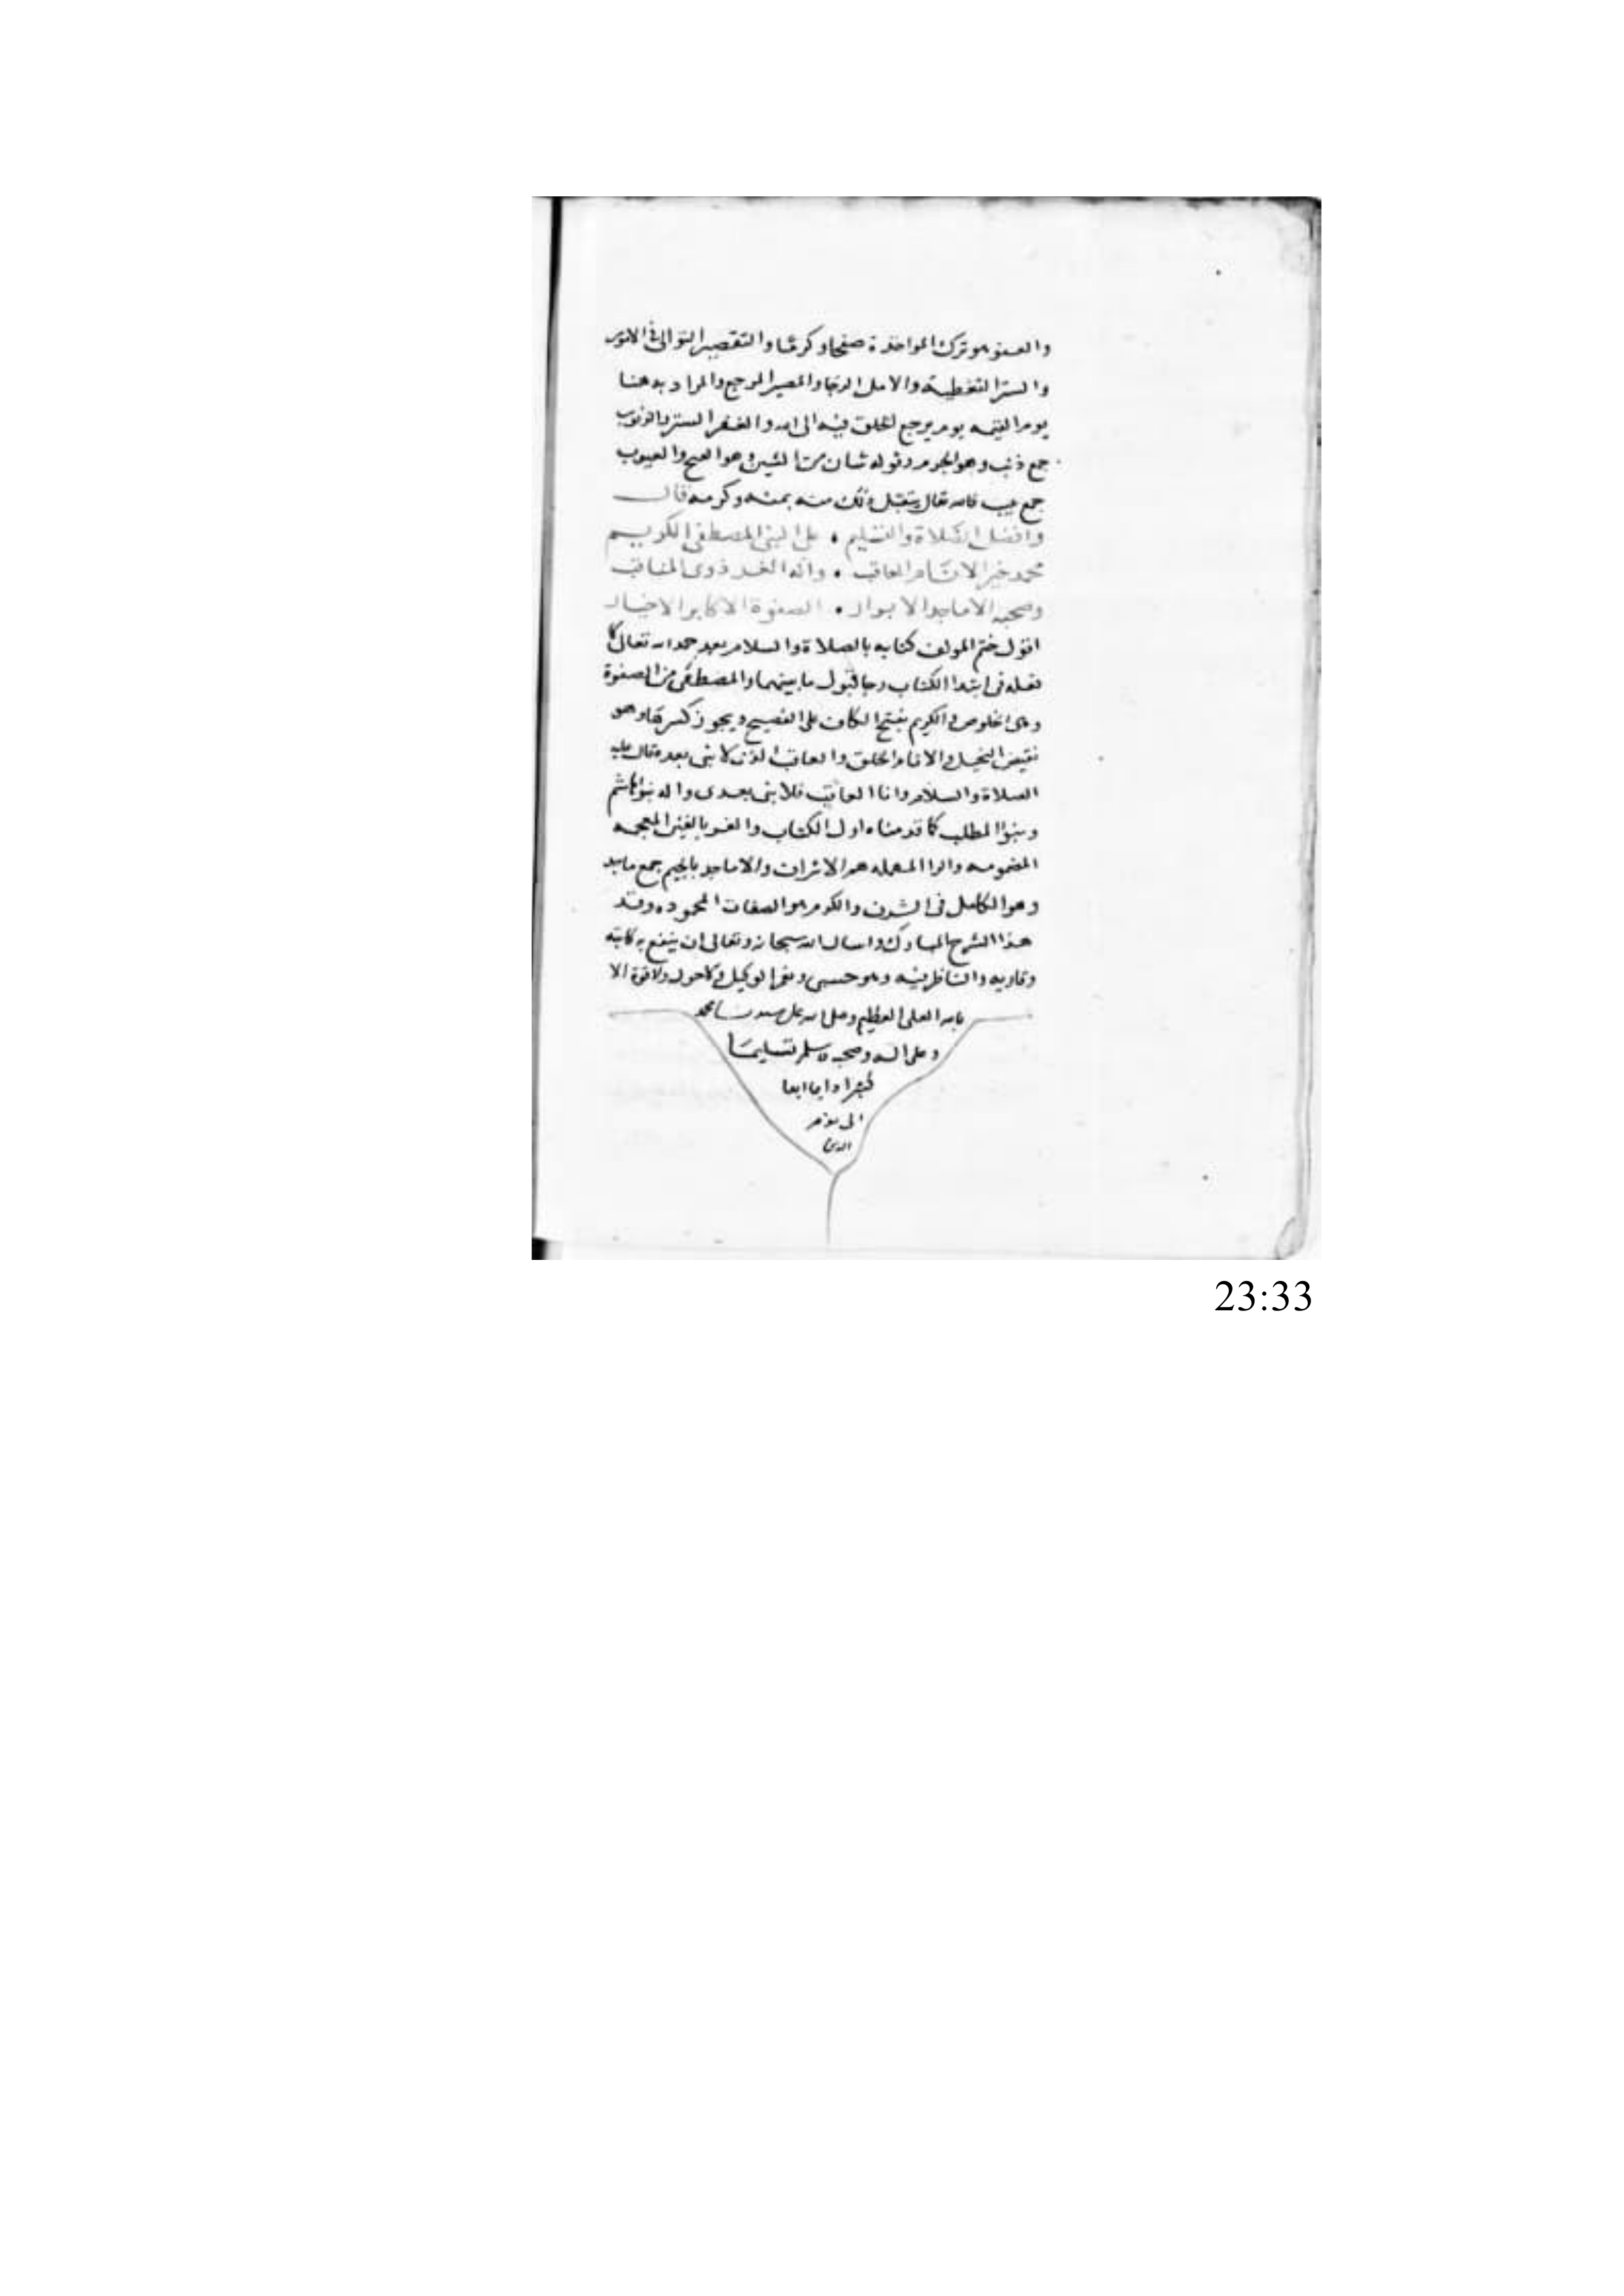 والعفو هو ترك المواخذة صفحا وكرما والتقصير التوالى فى الامور
والستر التغطية والامل الرجا والمصير المرجع والمراد به هنا
يوم القيمه يوم يرجع الخلق فيه الى الله والغفر الستر والذنوب
جمع ذنب وهو الجرم وقوله شان من الشين وهو القبح والعيوب
جمع عيب فالله تعال يتقبل ذلك منه بمنه وكرمه قال
وافضل الصلاة والتسليم . على النبى المصطفى الكريم
محمد خير الانام العاقب . واله الغر ذوى المناقب
وصحبه الاماجد الابرار . الصفوة الاكابر الاخيار
اقول ختم المولف كتابه بالصلاة والسلام بعد حمد الله تعالى كما
فعله فى ابتدا الكتاب رجا قبول ما بينهما والمصطفى من الصفوة
وهى الخلوص والكريم بفتح الكاف على الفصيح ويجوز كسرها وهو
نقيض البخيل والانام الخلق والعاقب الذى لا نبى بعده قال عليه
الصلاة والسلام وانا العاقب فلا نبى بعدى واله بنوا هاشم
وبنوا المطلب كما قدمناه اول الكتاب والغر بالغين المعجمه
المضمومه والرا المهمله هم الاشراف والاماجد بالجيم جمع ماجد
وهو الكامل فى الشرف والكرم هو الصفات المحموده وقد
هذا الشرح المبارك واسال الله سبحانه وتعالى ان ينفع به كاتبه
وقاريه والناظر فيه وهو حسبى ونعم الوكيل ولا حول ولا قوة الا
بالله العلى العظيم وصلى الله على سيدنا محمد
وعلى اله وصحبه وسلم تسليما
كثيرا دايما ابدا
الى يوم
الدين
23:33